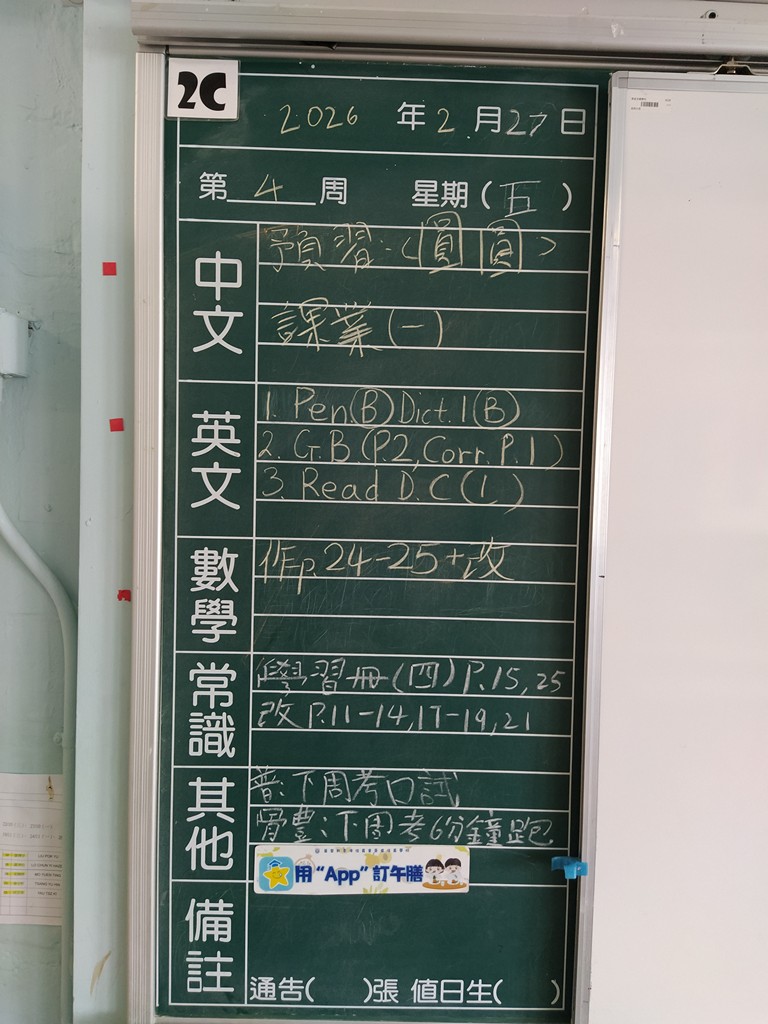 2C
2026 年 2 月 27 日
第 4 周 星期 ( 五 )
中文
預習:〈圓圓〉
課業(一)
英文
1. Pen(B) Dict.1(B)
2. G.B.(P.2, Corr. P.1)
3. Read D.C(1)
數學
作p.24-25+改
常識
學習冊(四)P.15,25
改P.11-14,17-19,21
其他
普:下周考口試
體:下周考6分鐘跑
用“App”訂午膳
備註
通告( )張 值日生( )